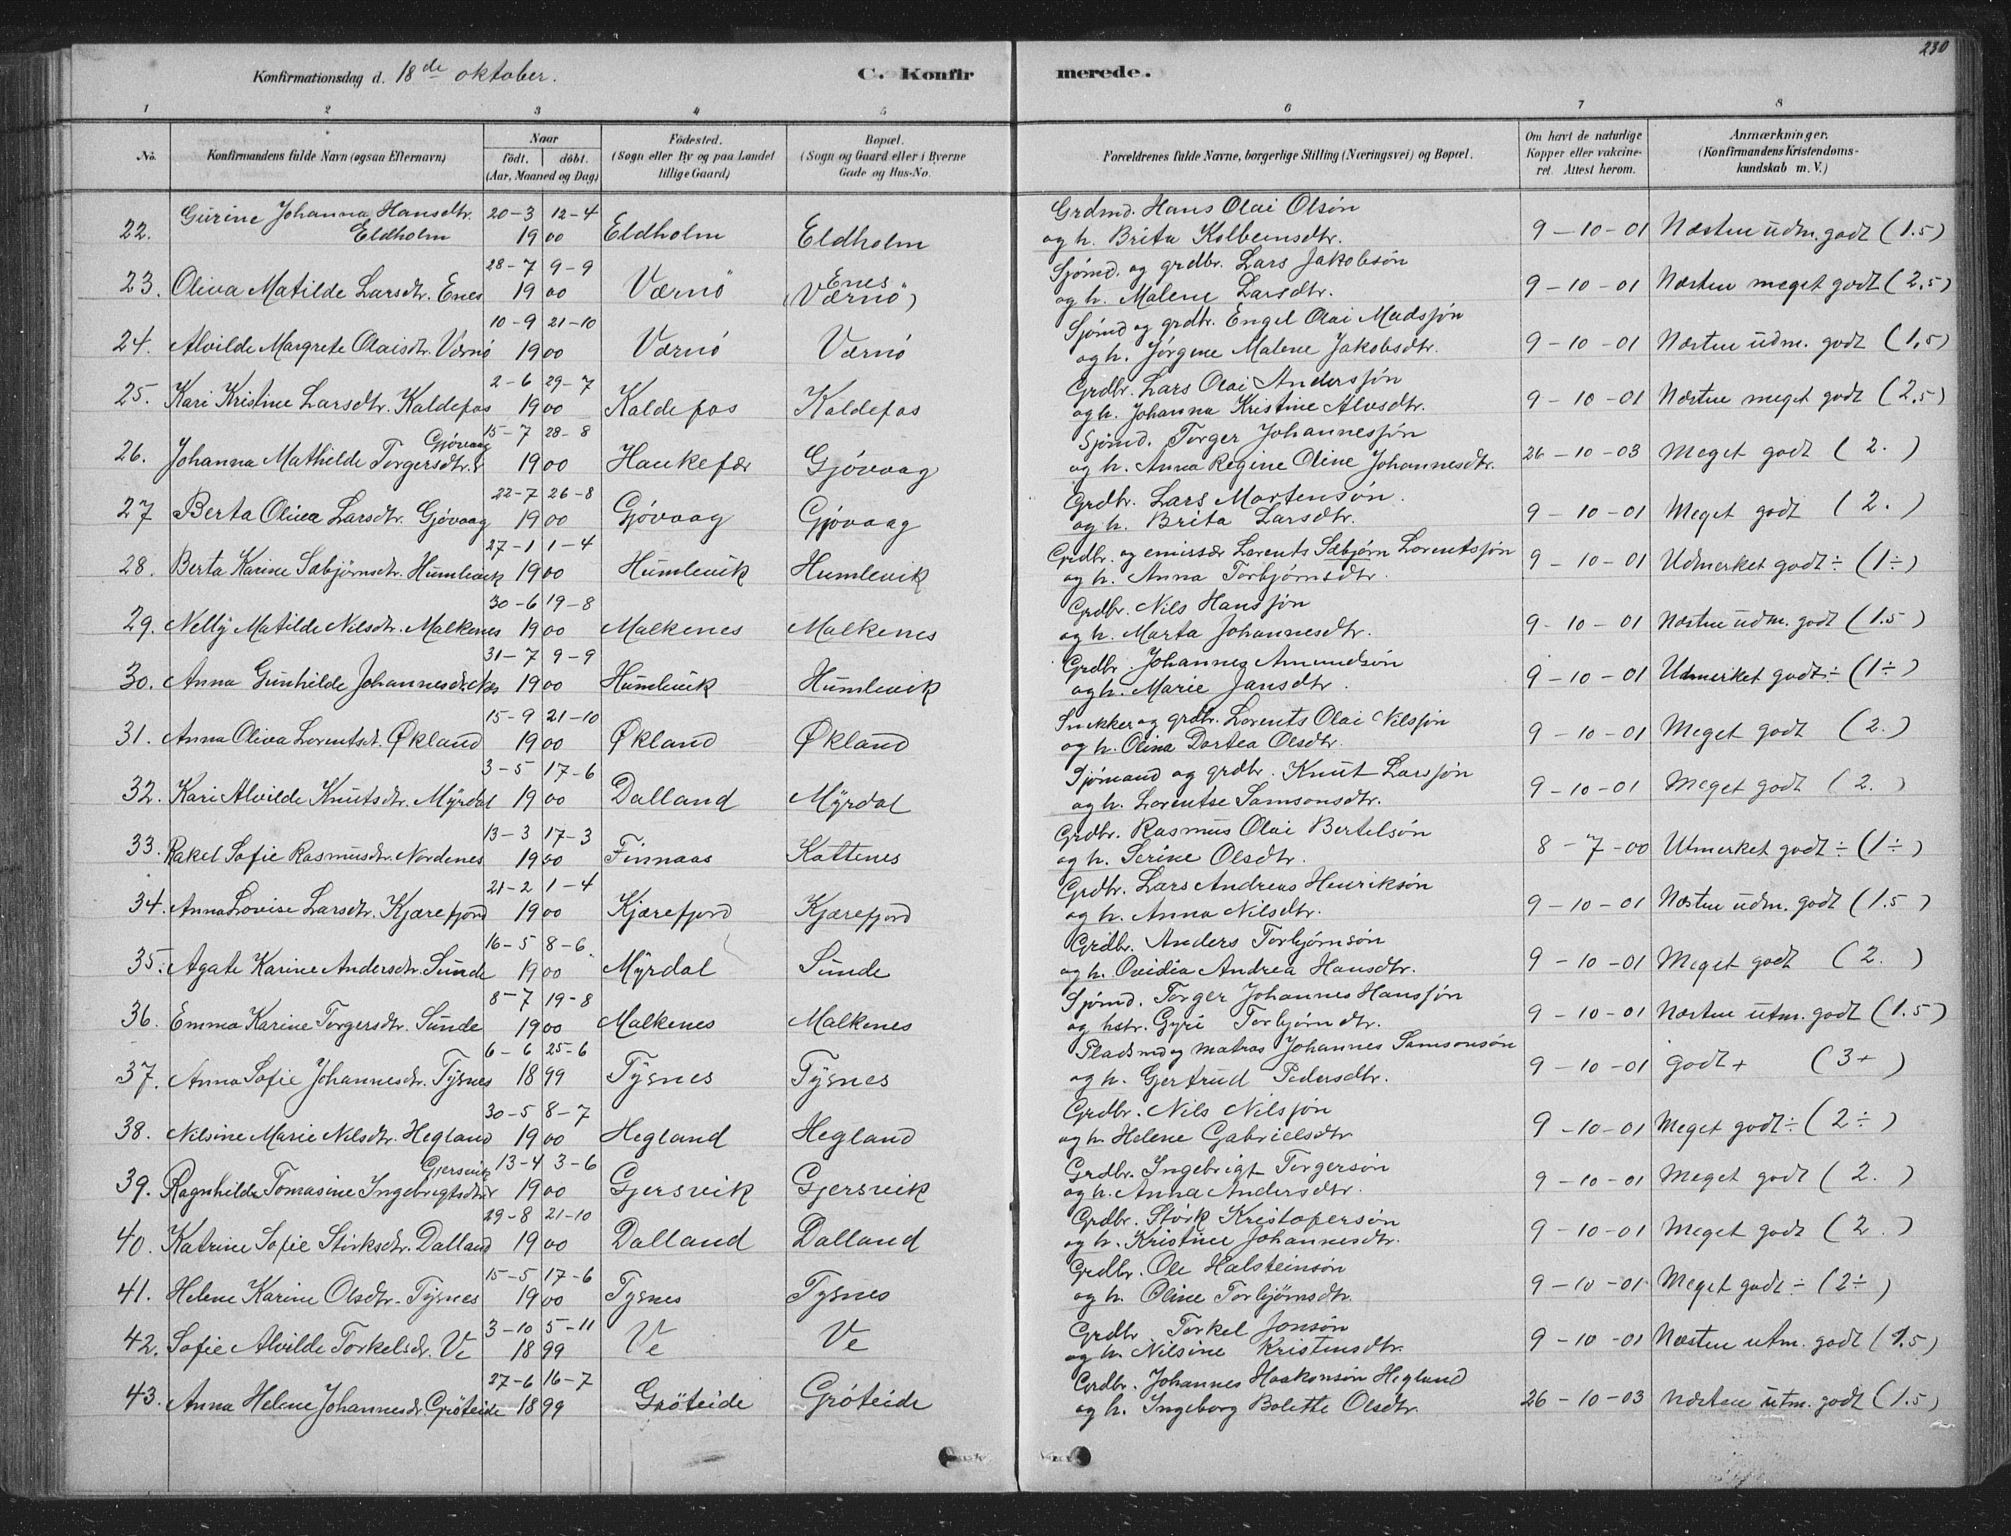 230
Konfirmationsdag d. 18de oktober. C. Konfirmerede.
1 2 3 4 5 6 7 8
No. Konfirmandens fulde Navn (ogsaa Efternavn) Naar født. døbt. (Aar, Maaned og Dag) Fødested. (Sogn eller By og paa Landet tillige Gaard) Bopæl. (Sogn og Gaard eller i Byerne Gade og Hus-No. Forældrenes fulde Navne, borgerlige Stilling (Næringsvei) og Bopæl. Om havt de naturlige Kopper eller vakcineret. Attest herom. Anmærkninger. (Konfirmandens Kristendomskundskab m. V.)
22. Gurine Johanna Hansdtr. Eldholm 20-3 12-4 1900 Eldholm Eldholm Grdmd. Hans Olai Olsøn og h. Brita Kolbeinsdtr. 9-10-01 Næsten udm. godt (1.5)
23. Oliva Matilde Larsdtr. Enes 28-7 9-9 1900 Værnø Enes (Værnø) Sjømd. og grdbr. Lars Jakobsøn og h. Malene Larsdtr. 9-10-01 Næsten meget godt (2,5)
24. Alvilde Margrete Olaisdtr. Værnø 10-9 21-10 1900 Værnø Værnø Sjømd og grdbr. Engel Olai Madsjøn og h. Jørgine Malene Jakobsdtr. 9-10-01 Næsten udm. godt (1,5)
25. Kari Kristine Larsdtr. Kaldefos 2-6 29-7 1900 Kaldefos Kaldefos Grdbr. Lars Olai Andersjøn og h. Johanna Kristine Alvsdtr. 9-10-01 Næsten meget godt (2,5)
26. Johanna Mathilde Torgersdtr. Gjøvaag 15-7 28-8 1900 Haukefær Gjøvaag Sjømd. Torger Johannesjøn og h. Anna Regine Oline Johannesdtr. 26-10-03 Meget godt (2.)
27 Berta Olina Larsdtr. Gjøvaag 22-7 26-8 1900 Gjøvaag Gjøvaag Grdbr. Lars Martensøn. og h. Brita Larsdtr. 9-10-01 Meget godt (2.)
28. Berta Karine Sæbjørnsdtr. Humlevik 27-1 1-4 1900 Humlevik Humlevik Grdbr. og emissær Lorents Sæbjørn Lorentsjøn og h. Anna Torbjørnsdtr. 9-10-01 Udmerket godt ÷ (1÷)
29. Nelly Matilde Nilsdtr. Malkenes 30-6 19-8 1900 Malkenes Malkenes Grdbr. Nils Hansjøn og h. Marta Johannesdtr. 9-10-01 Næsten udm. godt (1.5)
30. Anna Gunhilde Johannesdtr. Næs 31-7 9-9 1900 Humlevik Humlevik Grdbr. Johannes Amundsøn og h. Marie Jansdtr. 9-10-01 Udmerket godt ÷ (1÷)
31. Anna Oliva Lorentsdt. Økland 15-9 21-10 1900 Økland Økland Snekker og grdbr. Lorents Olai Nilsjøn og h. Olina Dortea Olsdtr. 9-10-01 Meget godt (2.)
32. Kari Alvilde Knutsdtr. Myrdal 3-5 17-6 1900 Dalland Myrdal Sjømand og grdbr. Knut Larsjøn og h. Lorentse Samsonsdtr. 9-10-01 Meget godt (2.)
33. Rakel Sofie Rasmusdtr. Nordenes 13-3 17-3 1900 Finnaas Kattenes Grdbr. Rasmus Olai Bertelsøn og h. Serine Olsdtr. 8-7-00 Utmerket godt ÷ (1÷)
34. Anna Lovise Larsdtr. Kjærefjord 21-2 1-4 1900 Kjærefjord Kjærefjord Grdbr. Lars Andreas Henriksøn og h. Anna Nilsdtr. 9-10-01 Næsten udm. godt (1.5)
35. Agate Karine Andersdtr. Sunde 16-5 8-6 1900 Myrdal Sunde Grdbr. Anders Torbjørnsøn og h. Ovidia Andrea Hansdtr. 9-10-01 Meget godt (2.)
36. Emma Karine Torgersdtr. Sunde 8-7 19-8 1900 Malkenes Malkenes Sjømd. Torger Johannes Hansjøn og hstr. Gyri Torbjørndtr. 9-10-01 Næsten utm. godt (1.5)
37. Anna Sofie Johannesdtr. Tysnes 6-6 25-6 1899 Tysnes Tysnes Pladsmd og matros Johannes Samsonsøn og h. Gjertrud Pedersdtr. 9-10-01 godt + (3+)
38. Nilsine Marie Nilsdtr. Hegland 30-5 8-7 1900 Hegland Hegland Grdbr. Nils Nilsjøn og h. Helene Gabrielsdtr 9-10-01 Meget godt ÷ (2÷)
39. Ragnhilde Tomasine Ingebrigtsdtr Gjersvik 13-4 3-6 1900 Gjersvik Gjersvik Grdbr. Ingebrigt Torgersøn og h. Anna Andersdtr. 9-10-01 Meget godt (2.)
40. Katrine Sofie Størksdtr. Dalland 29-8 21-10 1900 Dalland Dalland Grdbr. Størk Kristofersøn og h. Kristine Johannesdtr. 9-10-01 Meget godt (2.)
41. Helene Karine Olsdtr. Tysnes 15-5 17-6 1900 Tysnes Tysnes Grdbr. Ole Halsteinsøn og h. Oline Torbjørnsdtr. 9-10-01 Meget godt ÷ (2÷)
42. Sofie Alvilde Torkelsdr. Ve 3-10 5-11 1899 Ve Ve Grdbr Torkel Jonsøn og h. Nilsine Kristensdtr. 9-10-01 Næsten utm. godt (1.5)
43. Anna Helene Johannesdr. Grøteide 27-6 16-7 1899 Grøteide Grøteide Grdbr. Johannes Haakonsøn Hegland og h. Ingeborg Bolette Olsdtr. 26-10-03 Næsten utm. godt (1.5)